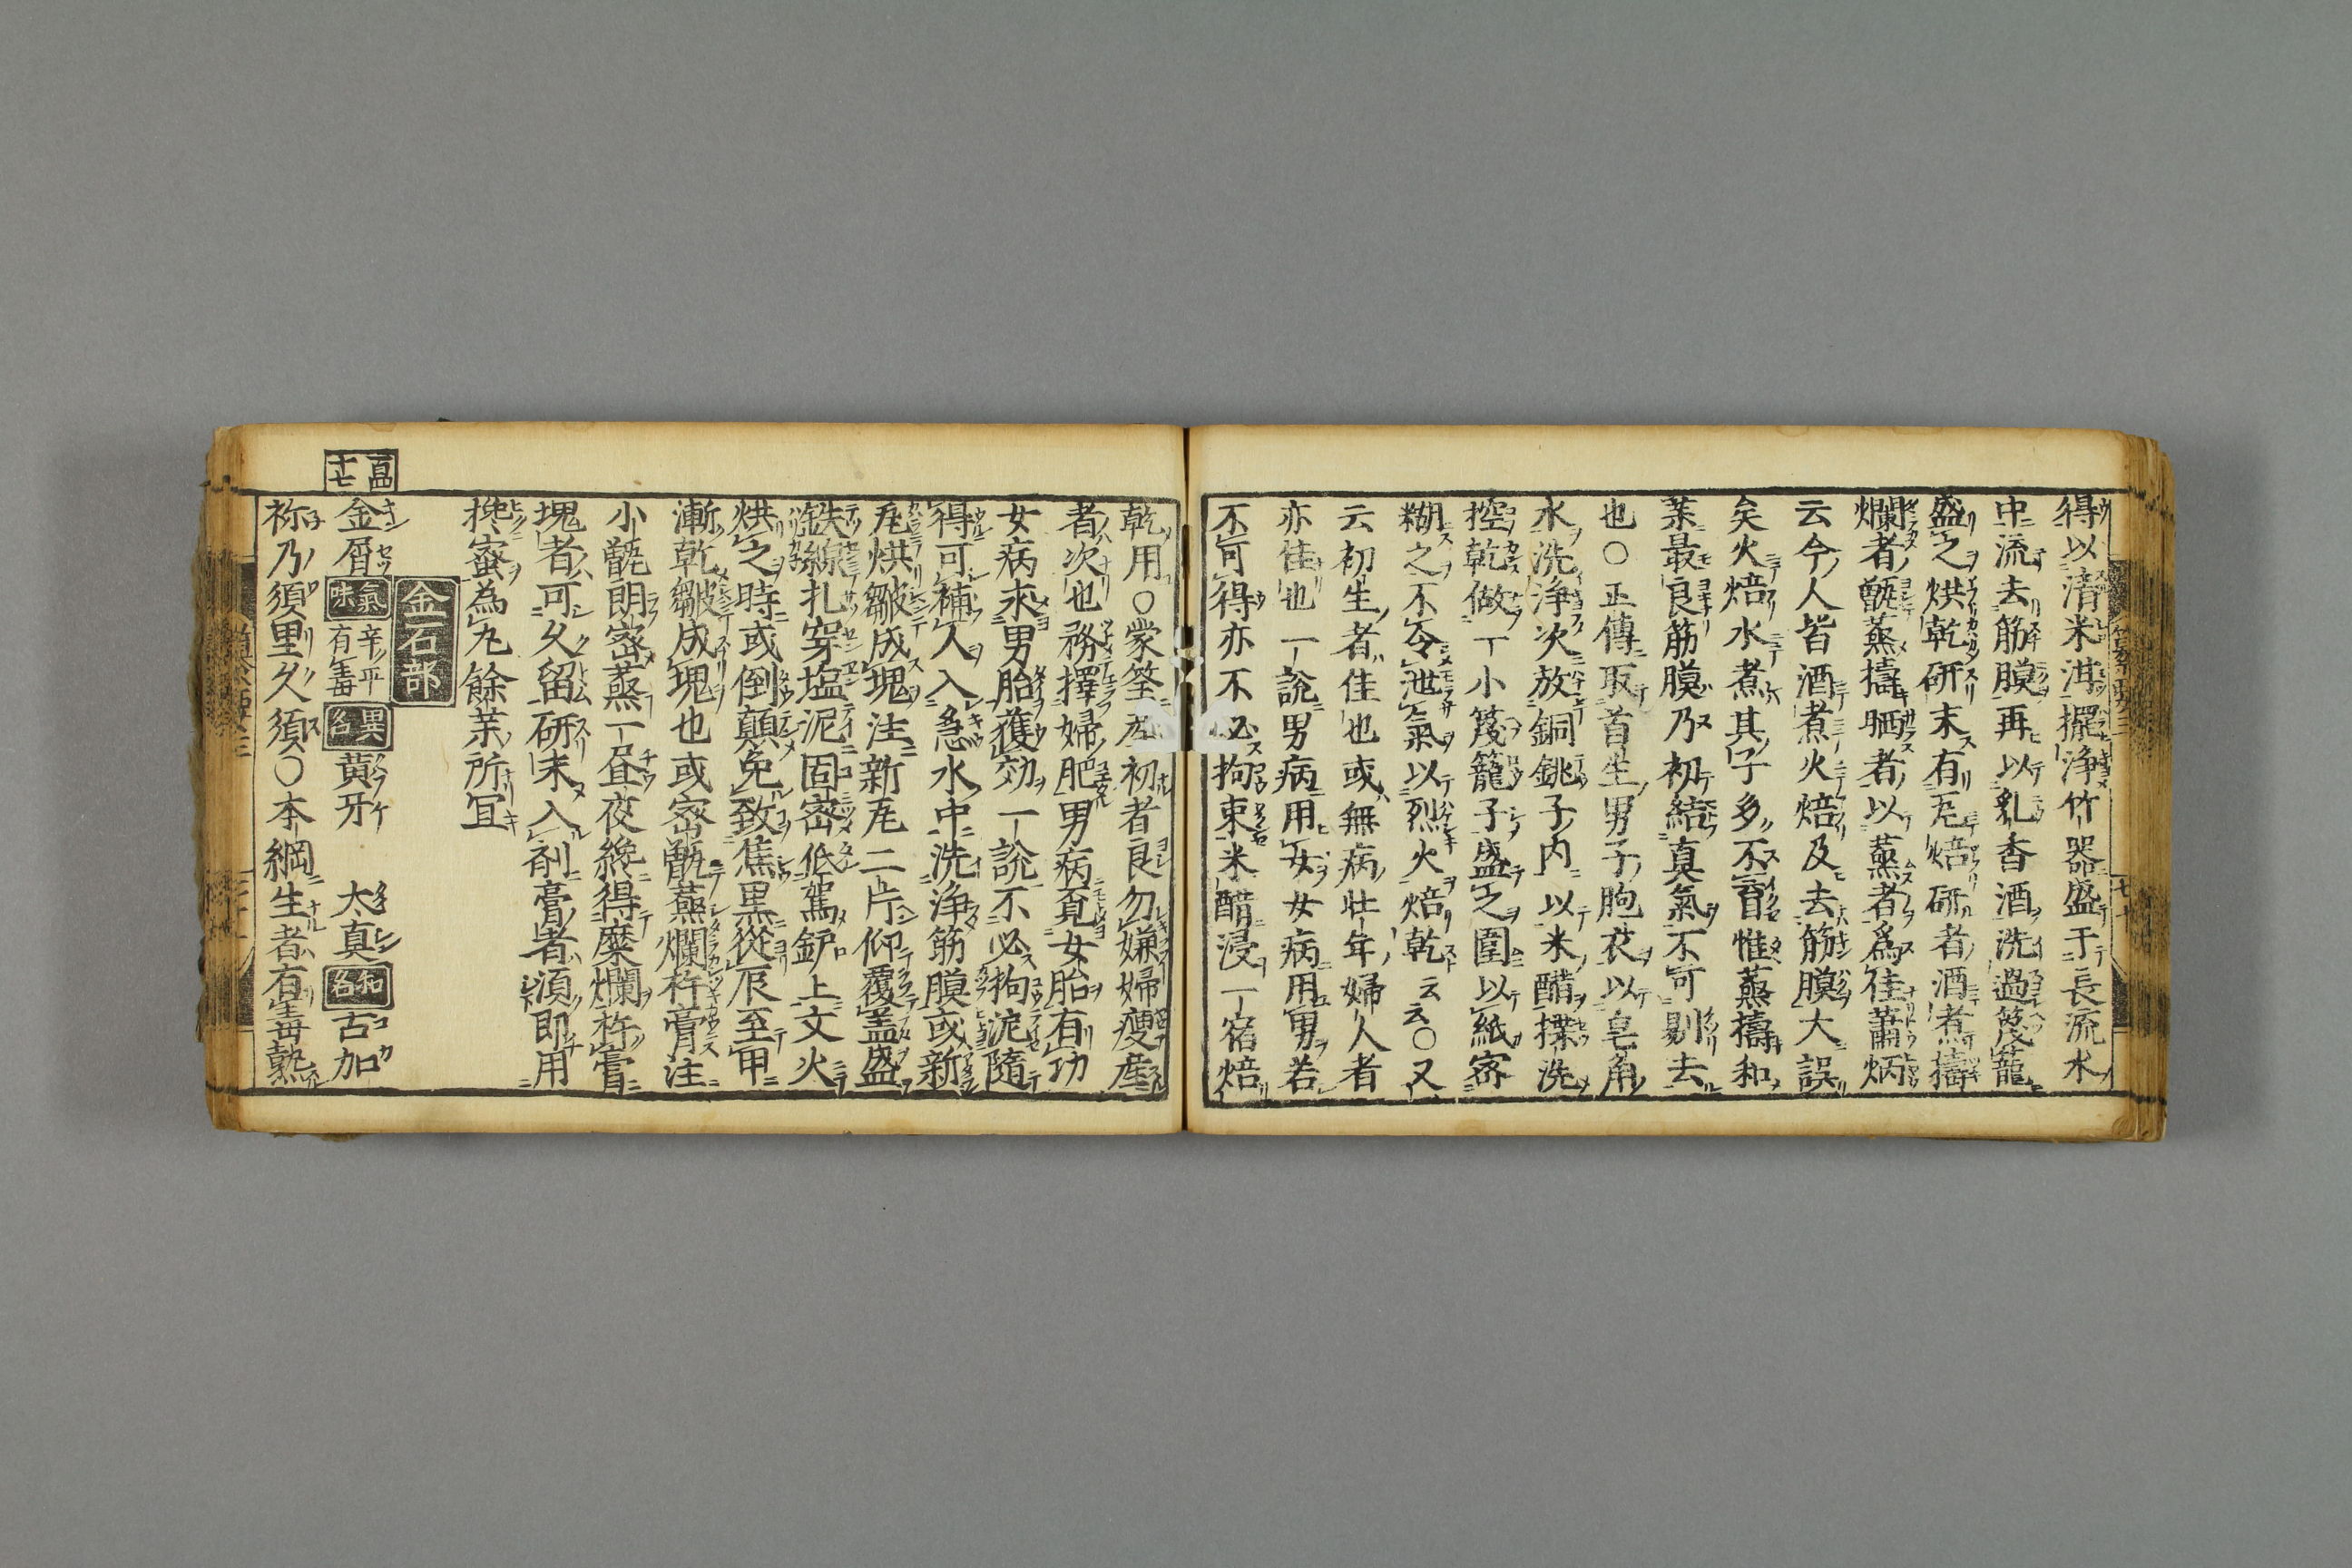 得以潸米泔擺浄竹器盛于長流水
中流去筋膜再以乳香酒洗過筏籠
盛之烘乾研末有瓦焙研者酒煮擣
爛者甑蒸擣晒者以蒸者爲佳蕭炳
云今人皆酒煮火焙及去筋膜大誤
矣火焙水煮其子多不育惟蒸擣和
藥最良筋膜乃初結真氣不可剔去
也○正傳取首生男子胞衣以皂角
水洗浄次放銅銚子内以米醋揲洗
控乾做一小筏籠子盛之圍以紙密
糊之不令泄氣以烈火焙乾云云○又
云初生者佳也或無病壮年婦人者
亦佳也一説男病用女女病用男若
不可得亦不必拘束米醋浸一宿焙
乾用○蒙筌初者良勿嫌婦瘦産
者次也務擇婦肥男病覓女胎有功
女病求男胎獲効一説不必拘泥隨
得可補人入急水中洗浄筋膜或新
瓦烘皺成塊注新瓦二片仰覆盖盛
鉄線扎穿塩泥固密低駕鈩上文火
烘之時或倒顛免致焦黒從辰至甲
漸乾皺成塊也或密甑蒸爛杵膏注
小甑朗密蒸一昼夜纔得糜爛杵膏
塊者可久留研末入剤膏者須即用
攙蜜為丸餘茉所冝
金石部
百四十七
金屑 氣味 辛平有毒 異名 黄牙 太真 和名 古加
祢乃須里久須○本綱生者有毒熟